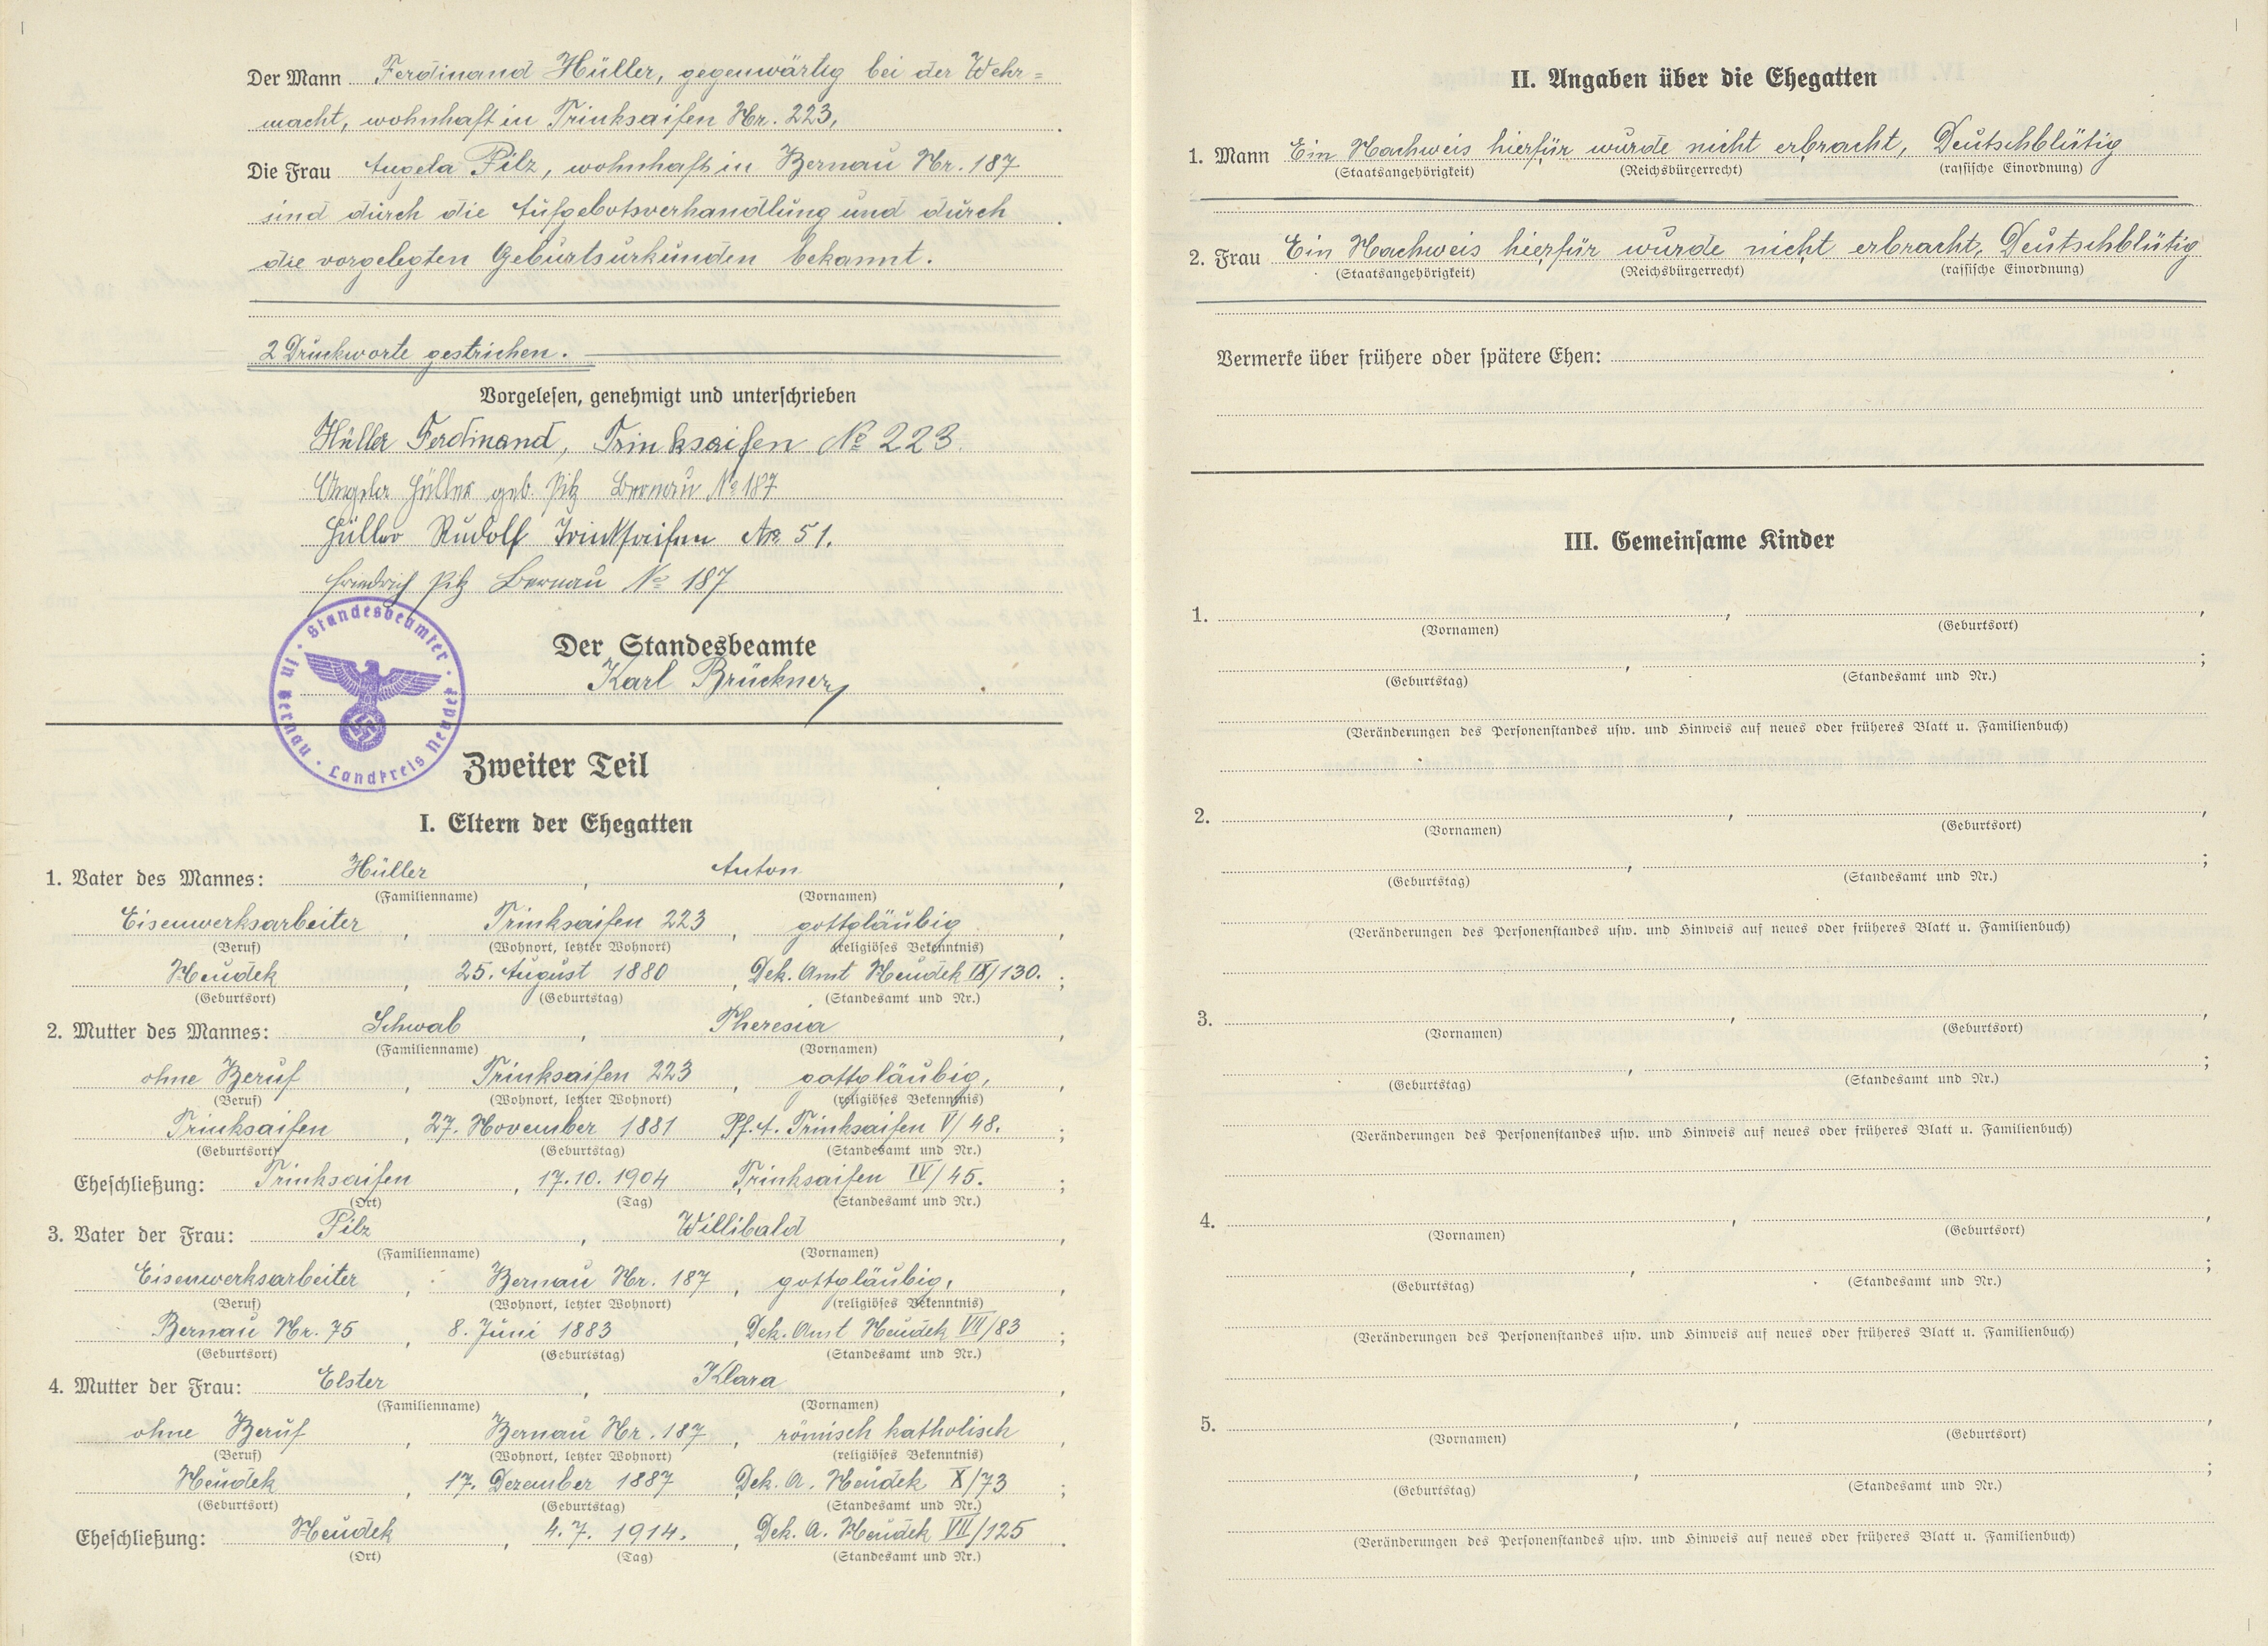 Der Mann Ferdinand Hüller, gegenwärtig bei der Wehr=
macht, wohnhaft in Trinksaifen Nr. 223,
Die Frau Angela Pilz, wohnhaft in Bernau Nr. 187
sind durch die Aufgebotsverhandlung und durch
die vorgelegten Geburtsurkunden bekannt.
2 Druckworte gestrichen.
Vorgelesen, genehmigt und unterschrieben
Hüller Ferdinand, Trinksaifen No 223.
Angela Hüller geb. Pilz Bernau No 187
Hüller Rudolf Trinksaifen No 51.
Friedrich Pilz Bernau No 187
Der Standesbeamte
Karl Brückner
Standesbeamter · Landkreis Neudek · in Bernau ·
Zweiter Teil
I. Eltern der Ehegatten
1. Vater des Mannes: Hüller, Anton,
(Familienname) (Vornamen)
Eisenwerksarbeiter, Trinksaifen 223, gottgläubig,
(Beruf) (Wohnort, letzter Wohnort) (religiöses Bekenntnis)
Neudek, 25. August 1880, Dek. Amt Neudek IX/130. ;
(Geburtsort) (Geburtstag) (Standesamt und Nr.)
2. Mutter des Mannes: Schwab, Theresia,
(Familienname) (Vornamen)
ohne Beruf, Trinksaifen 223, gottgläubig,
(Beruf) (Wohnort, letzter Wohnort) (religiöses Bekenntnis)
Trinksaifen, 27. November 1881 Pf. A. Trinksaifen V/48. ;
(Geburtsort) (Geburtstag) (Standesamt und Nr.)
Eheschließung: Trinksaifen, 17.10.1904, Trinksaifen IV/45. ;
(Ort) (Tag) (Standesamt und Nr.)
3. Vater der Frau: Pilz, Willibald,
(Familienname) (Vornamen)
Eisenwerksarbeiter, Bernau Nr. 187, gottgläubig,
(Beruf) (Wohnort, letzter Wohnort) (religiöses Bekenntnis)
Bernau Nr. 75, 8. Juni 1883, Dek. Amt Neudek VII/83 ;
(Geburtsort) (Geburtstag) (Standesamt und Nr.)
4. Mutter der Frau: Elster, Klara,
(Familienname) (Vornamen)
ohne Beruf, Bernau Nr. 187, römisch katholisch,
(Beruf) (Wohnort, letzter Wohnort) (religiöses Bekenntnis)
Neudek, 17. Dezember 1887, Dek. A. Neudek X/73 ;
(Geburtsort) (Geburtstag) (Standesamt und Nr.)
Eheschließung: Neudek, 4.7.1914., Dek. A. Neudek VII/125.
(Ort) (Tag) (Standesamt und Nr.)
II. Angaben über die Ehegatten
1. Mann Ein Nachweis hierfür wurde nicht erbracht, Deutschblütig
(Staatsangehörigkeit) (Reichsbürgerrecht) (rassische Einordnung)
2. Frau Ein Nachweis hierfür wurde nicht erbracht, Deutschblütig
(Staatsangehörigkeit) (Reichsbürgerrecht) (rassische Einordnung)
Vermerke über frühere oder spätere Ehen:
III. Gemeinsame Kinder
1. , ,
(Vornamen) (Geburtsort)
, ;
(Geburtstag) (Standesamt und Nr.)
(Veränderungen des Personenstandes usw. und Hinweis auf neues oder früheres Blatt u. Familienbuch)
2. , ,
(Vornamen) (Geburtsort)
, ;
(Geburtstag) (Standesamt und Nr.)
(Veränderungen des Personenstandes usw. und Hinweis auf neues oder früheres Blatt u. Familienbuch)
3. , ,
(Vornamen) (Geburtsort)
, ;
(Geburtstag) (Standesamt und Nr.)
(Veränderungen des Personenstandes usw. und Hinweis auf neues oder früheres Blatt u. Familienbuch)
4. , ,
(Vornamen) (Geburtsort)
, ;
(Geburtstag) (Standesamt und Nr.)
(Veränderungen des Personenstandes usw. und Hinweis auf neues oder früheres Blatt u. Familienbuch)
5. , ,
(Vornamen) (Geburtsort)
, ;
(Geburtstag) (Standesamt und Nr.)
(Veränderungen des Personenstandes usw. und Hinweis auf neues oder früheres Blatt u. Familienbuch)